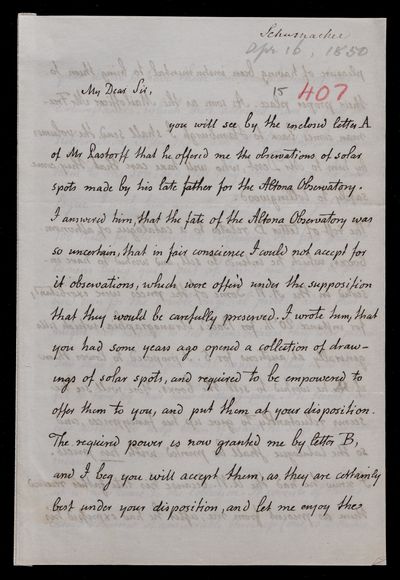 Schumacher
Apr 16, 1850
15 407
My Dear Sir,
you will see by the inclosed letter A
of Mr Pastorff that he offered me the observations of solar
spots made by his late father for the Altona Observatory.
I answered him, that the fate of the Altona Observatory was
so uncertain, that in fair conscience I could not accept for
it observations, which were offer'd under the supposition
that they would be carefully preserved. I wrote him, that
you had some years ago opened a collection of draw-
ings of solar spots, and required to be empowered to
offer them to you, and put them at your disposition.
The required power is now granted me by letter B,
and I beg you will accept them, as they are certainly
best under your disposition, and let me enjoy the